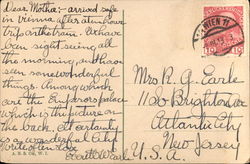 Dear Mother:- arrived safe
in Vienna after a
trip on the train. I have
been sight seeing all
the morning, and have
seen some wonderful
things. Among which
are the Emperors palace
which is the picture on
the back. It certainly
is a wonderful City
WIEN
Mrs R. G. Earle
110 So Brighton Ave
Atlantic City
New Jersey
U. S. A.